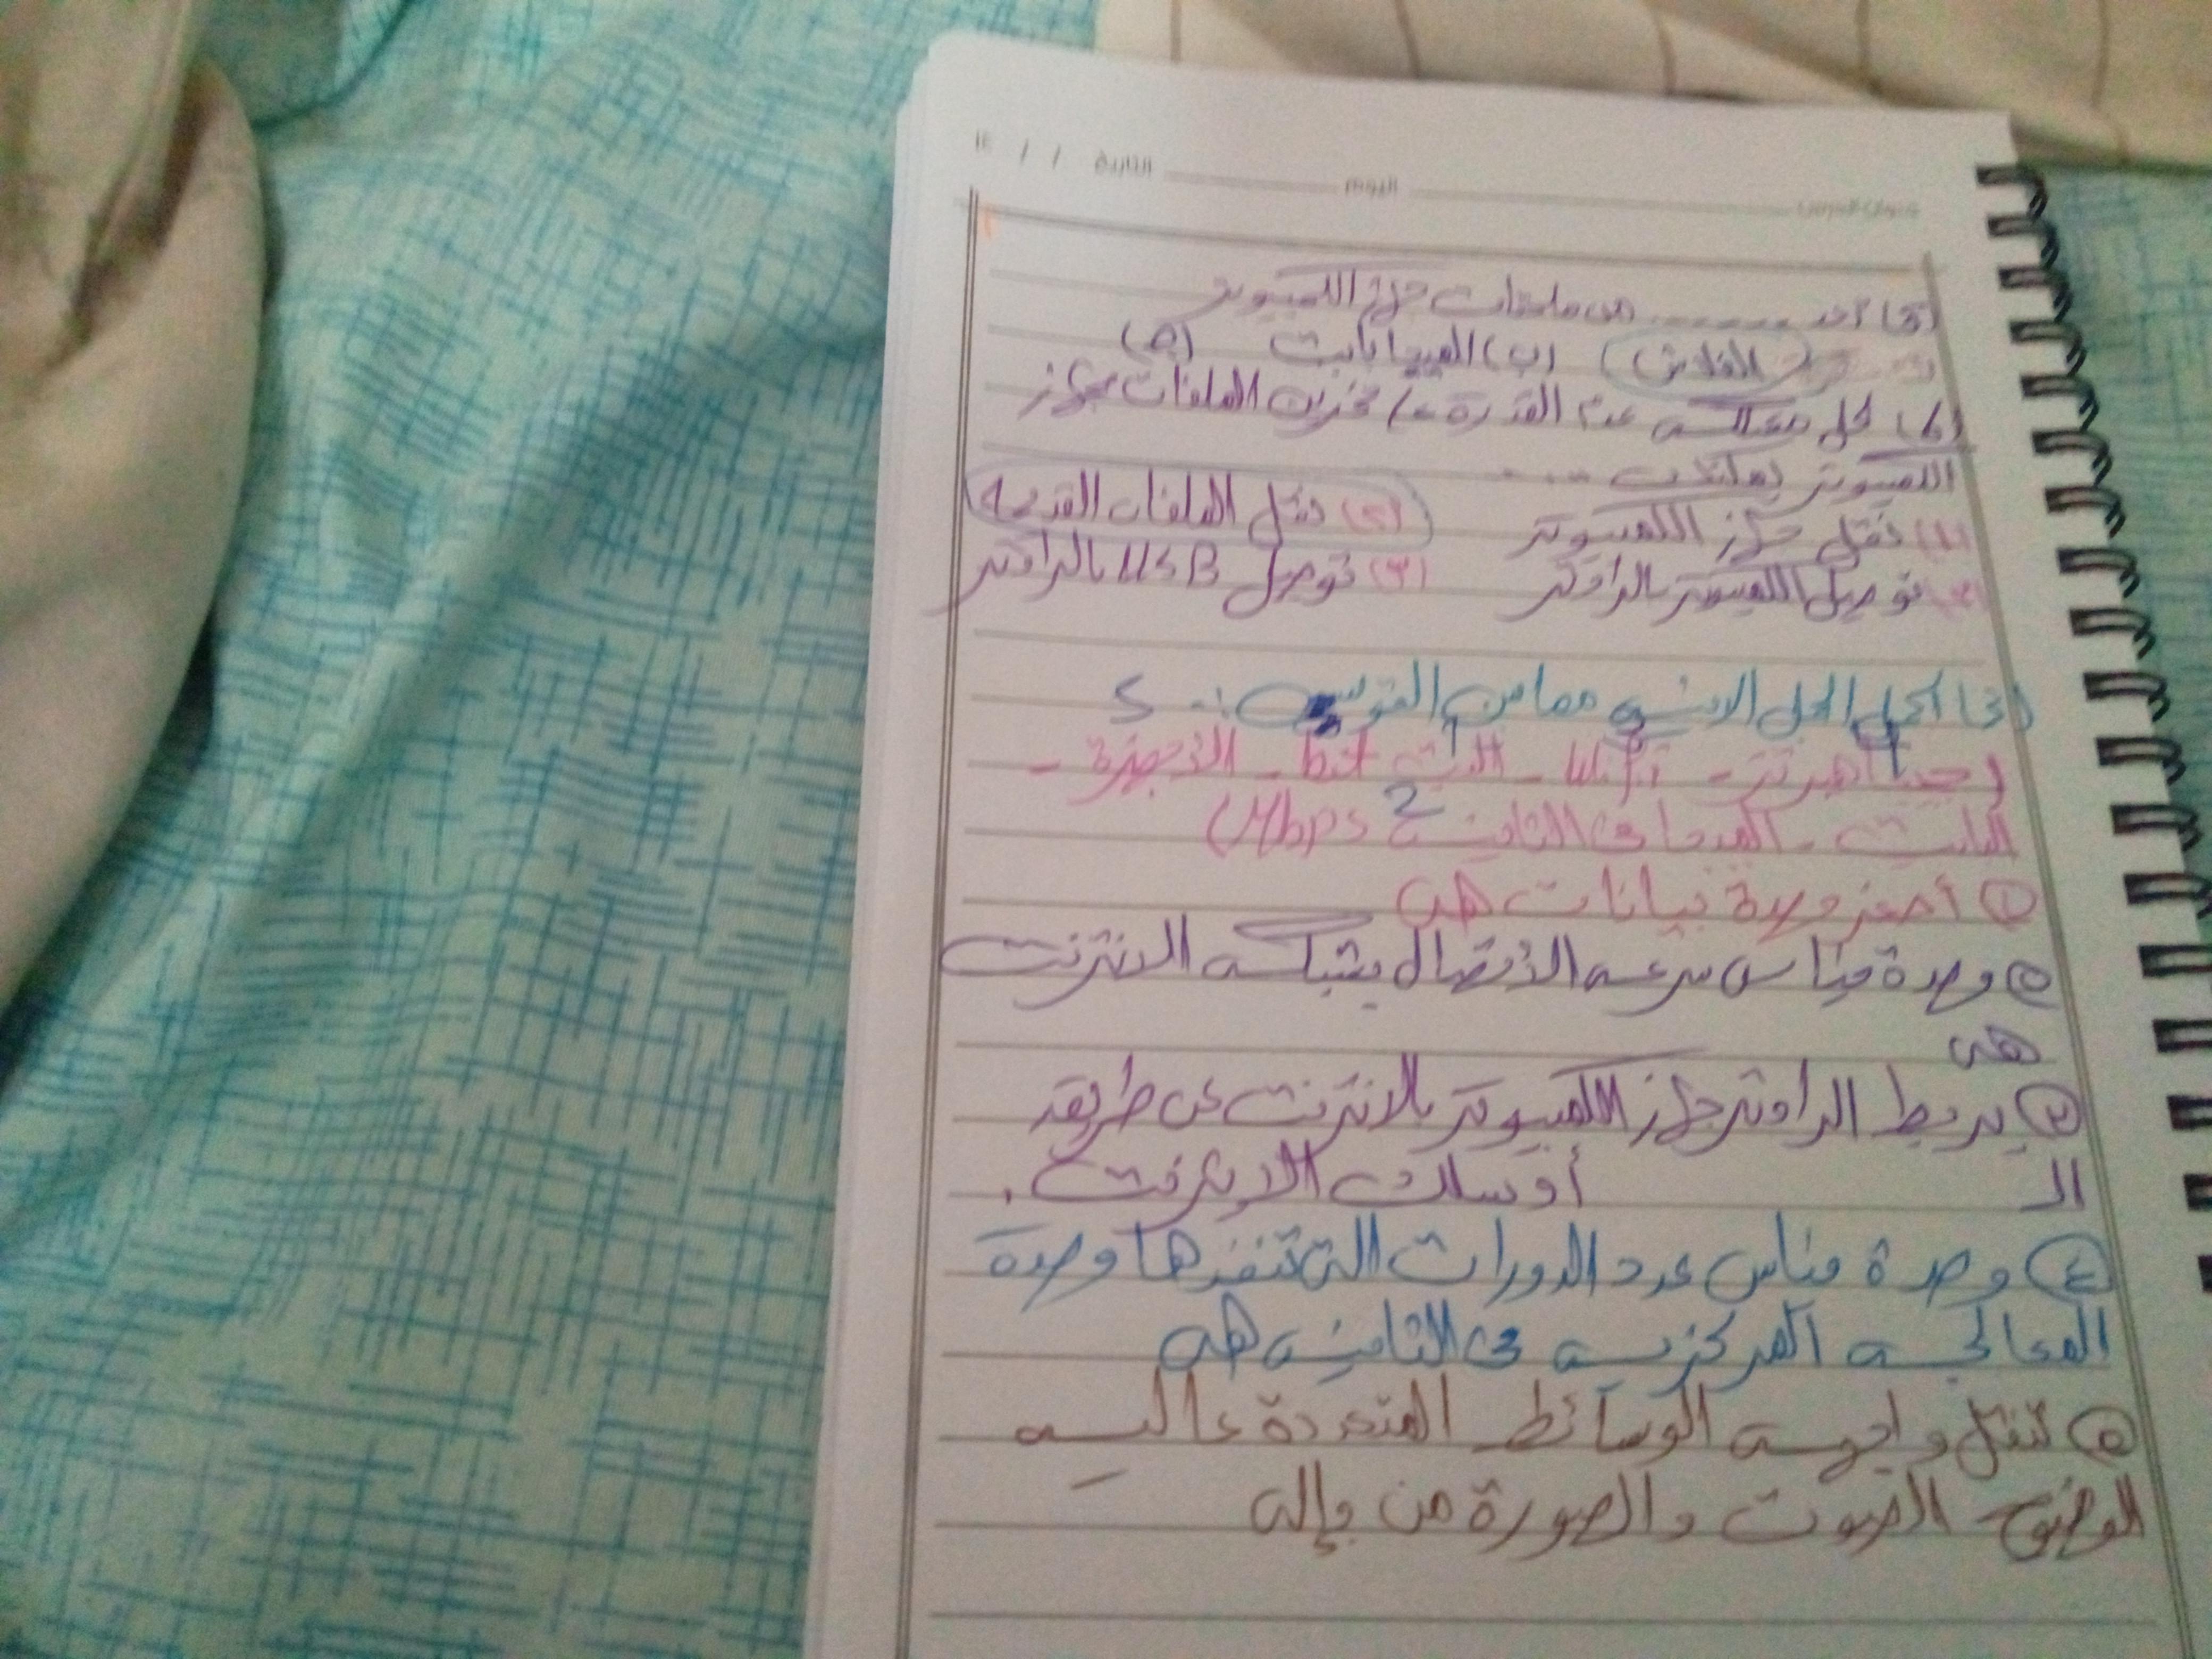 التاريخ / / ١٤
اليوم
من ملحقات جهاز الكمبيوتر
الفلاش (ب) الميجابايت (ج)
لحل مشكلة عدم القدرة على تخزين الملفات بجهاز
الكمبيوتر يمكنك ....
(١) نقل جهاز الكمبيوتر (٢) نقل الملفات القديمة
توصيل الكمبيوتر بالراوتر (٣) توصيل USB بالراوتر
اكمل الجمل الاتيه مما بين القوسين :-
(جيجا هرتز - - البت bit - الأجهزة -
البايت - الميجا في الثانية Mbps)
① أصغر وحدة بيانات هي
② وحدة قياس سرعه الأتصال بشبكه الانترنت
هي
③ يربط الراوتر جهاز الكمبيوتر بالانترنت عن طريق
الـ أو سلك الايثرنت .
④ وحدة قياس عدد الدورات التى تنفذها وحدة
المعالجه المركزيه في الثانيه هي
⑤ تنقل واجهه الوسائط المتعددة عاليه
الوضوح الصوت والصورة من وإلى